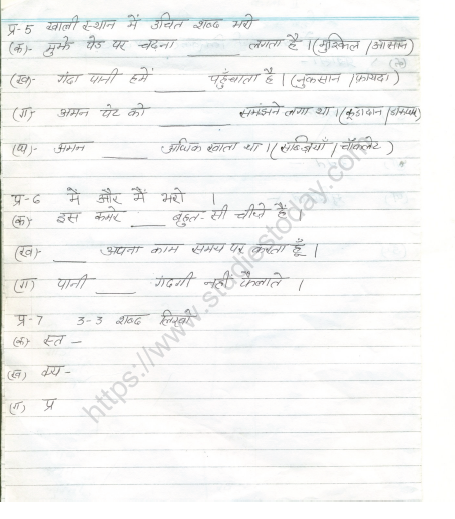 प्र-5 खाली स्थान में उचित शब्द भरो
(क)- मुझे पेड़ पर चढ़ना ______ लगता है । (मुश्किल / आसान)
(ख)- गंदा पानी हमें ______ पहुँचाता है । (नुकसान / फ़ायदा)
(ग)- अमन पेट को ______ समझने लगा था । (कूड़ादान
(घ)- अमन ______ अधिक खाता था । (सब्ज़ियाँ / चॉकलेट)
प्र-6 में और मैं भरो ।
(क) इस कमरे ____ बहुत-सी चीजें हैं
(ख) ____ अपना काम समय पर करता हूँ ।
(ग) पानी ____ गंदगी नहीं फैलाते ।
प्र-7 3-3 शब्द लिखो
(क) स्त -
(ख) क्य -
(ग) प्र
https://www.studiestoday.com